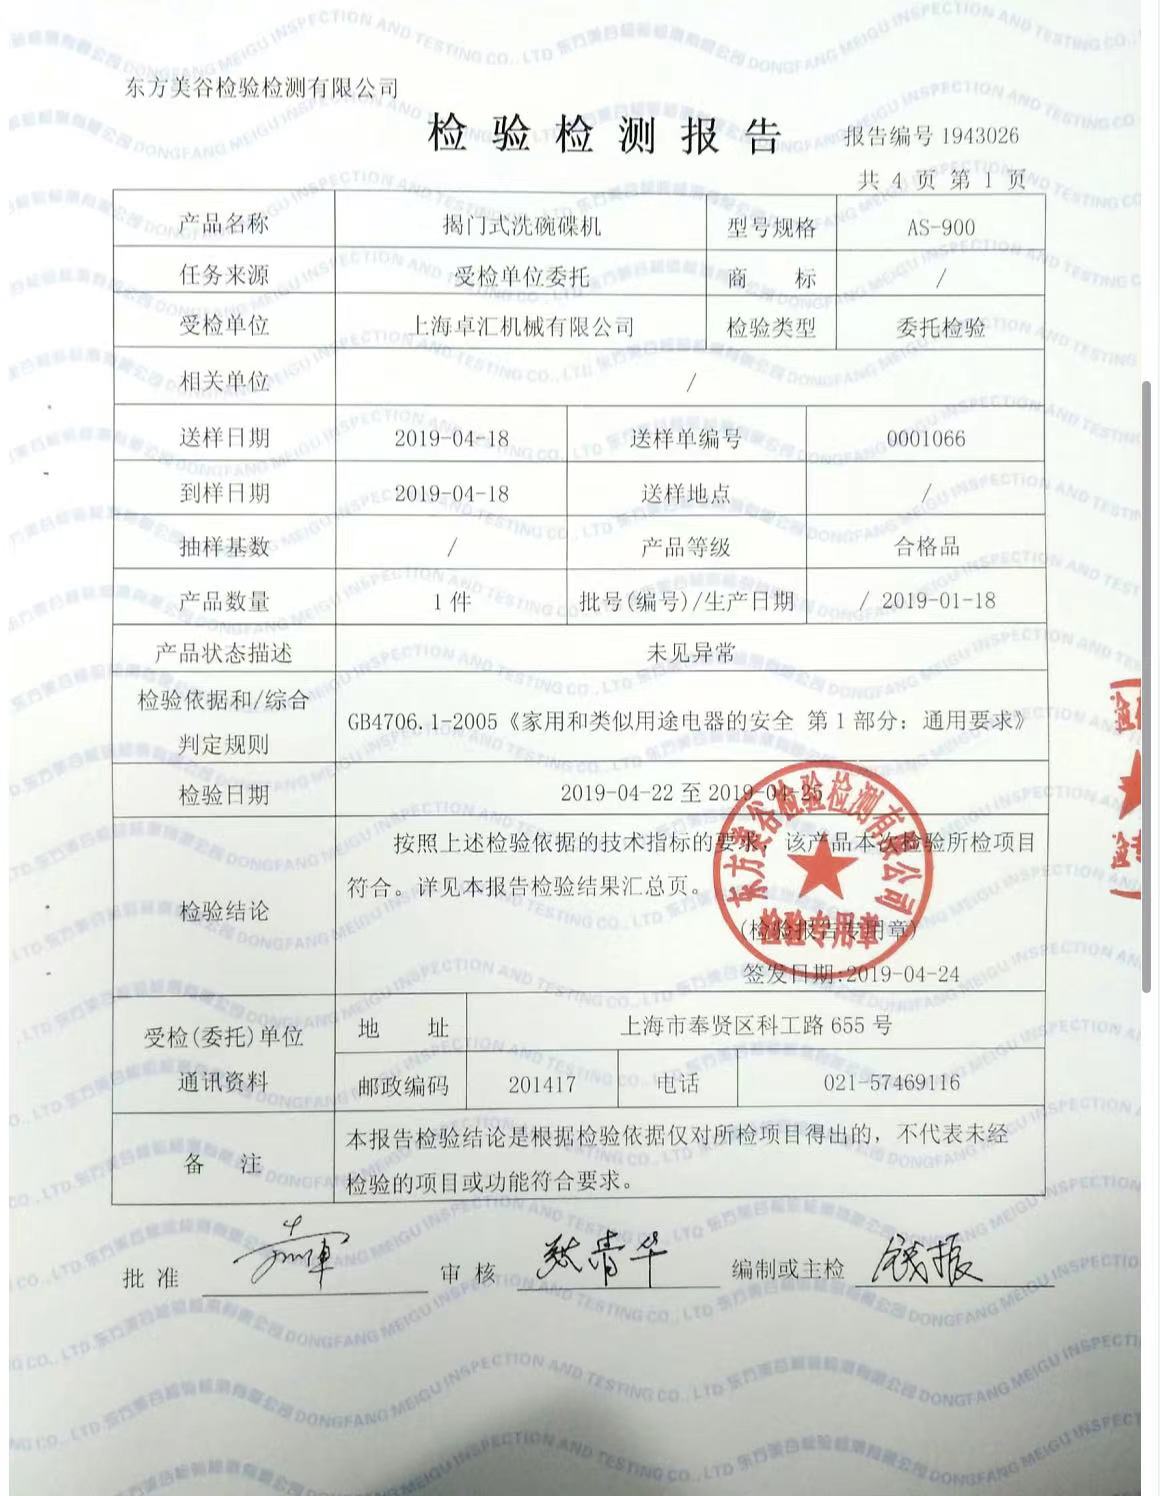 东方美谷检验检测有限公司
检验检测报告
报告编号 1943026
共 4 页 第 1 页
产品名称 揭门式洗碗碟机 型号规格 AS-900
任务来源 受检单位委托 商 标 /
受检单位 上海卓汇机械有限公司 检验类型 委托检验
相关单位 /
送样日期 2019-04-18 送样单编号 0001066
到样日期 2019-04-18 送样地点 /
抽样基数 / 产品等级 合格品
产品数量 1 件 批号(编号)/生产日期 / 2019-01-18
产品状态描述 未见异常
检验依据和/综合
判定规则
GB4706.1-2005《家用和类似用途电器的安全 第 1 部分：通用要求》
检验日期 2019-04-22 至 2019-04-25
检验结论
按照上述检验依据的技术指标的要求，该产品本次检验所检项目
符合。详见本报告检验结果汇总页。
(检验报告专用章)
签发日期:2019-04-24
东方美谷检验检测有限公司
检验专用章
受检(委托)单位
通讯资料
地 址 上海市奉贤区科工路 655 号
邮政编码 201417 电话 021-57469116
备 注
本报告检验结论是根据检验依据仅对所检项目得出的，不代表未经
检验的项目或功能符合要求。
批 准
审 核
编制或主检 钱振
东方美谷检验检测有限公司 DONGFANG MEIGU INSPECTION AND TESTING CO., LTD